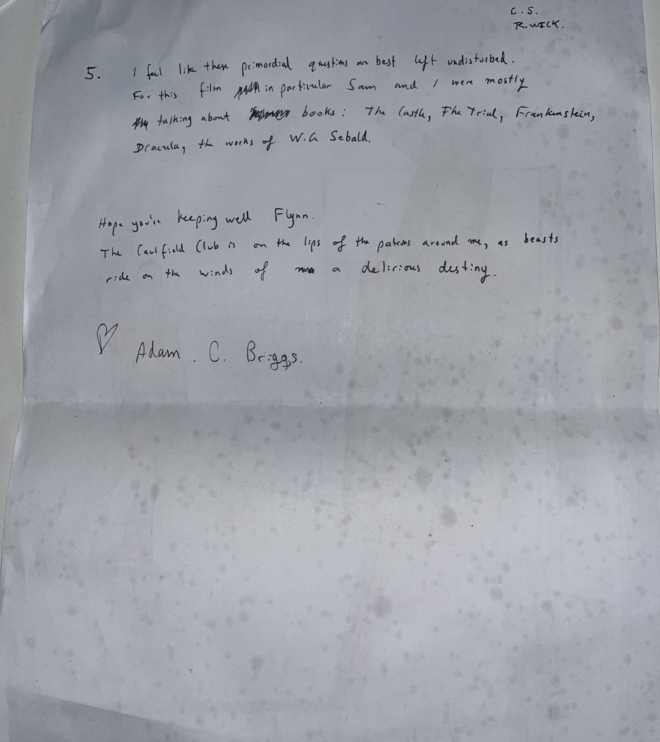 C.S.
R.WICK.
5. I feel like these primordial questions are best left undisturbed.
For this film in particular Sam and I were mostly
talking about books: The Castle, The Trial, Frankenstein,
Dracula, the works of W.G Sebald.
Hope you're keeping well Flynn.
The Caulfield Club is on the lips of the patrons around me, as beasts
ride on the winds of a delirious destiny.
Adam. C. Briggs.